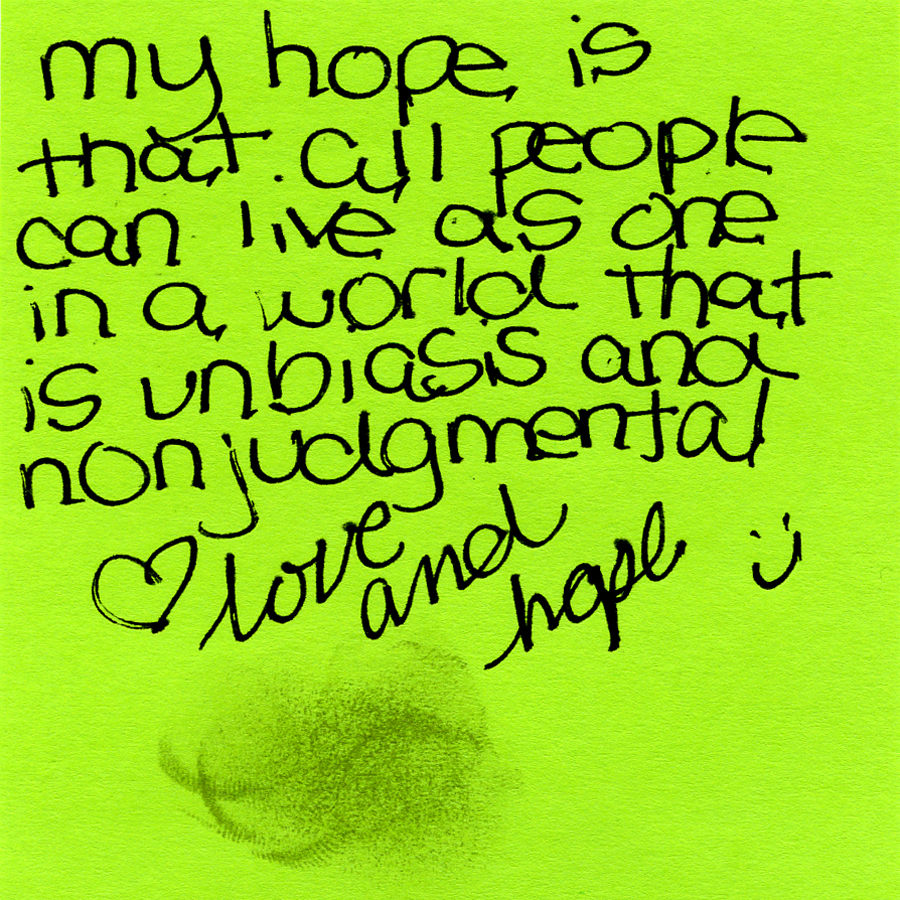 my hope is
that all people
can live as one
in a world that
is unbiasis and
nonjudgmental
♡ love and hope :)